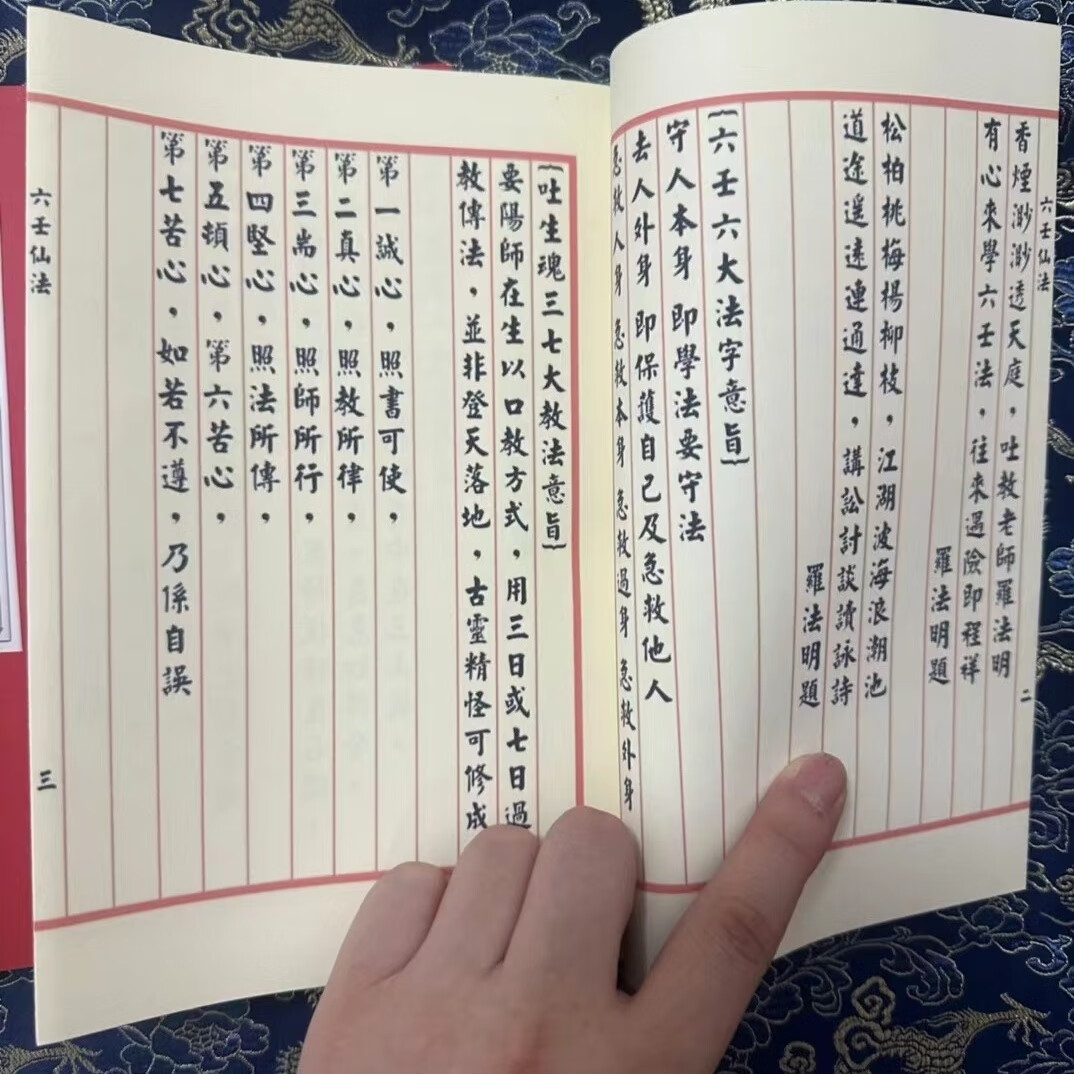 六壬仙法
二
香煙渺渺透天庭，吐教老師羅法明
有心來學六壬法，往來遇險即程祥
羅法明題
松柏桃梅楊柳枝，江湖波海浪潮池
道途遥遠連通達，講訟計談讀詠詩
羅法明題
{六壬六大法字意旨}
守人本身 即學法要守法
去人外身 即保護自己及急救他人
急救人身 急救本身 急救過身 急救外身
{吐生魂三七大教法意旨}
要陽師在生以口教方式，用三日或七日過
教傳法，並非登天落地，古靈精怪可修成
第一誠心，照書可使，
第二真心，照教所律，
第三耑心，照師所行，
第四堅心，照法所傳，
第五頓心，第六苦心，
第七苦心，如若不遵，乃係自誤
六壬仙法
三